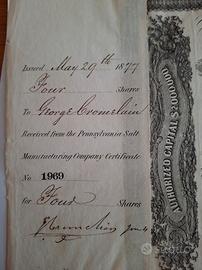 Issued May 29th 1877
Four Shares
To George Cromelain
Received from the Pennsylvania Salt
Manufacturing Company Certificate
No 1969
for Four Shares
AUTHORIZED CAPITAL $
subito